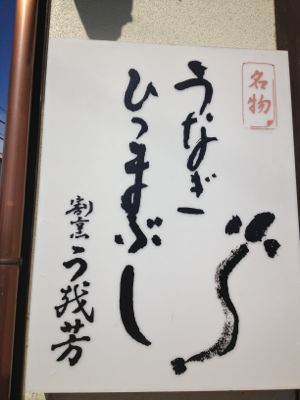 名物
うなぎ
ひつまぶし
割烹 う我芳